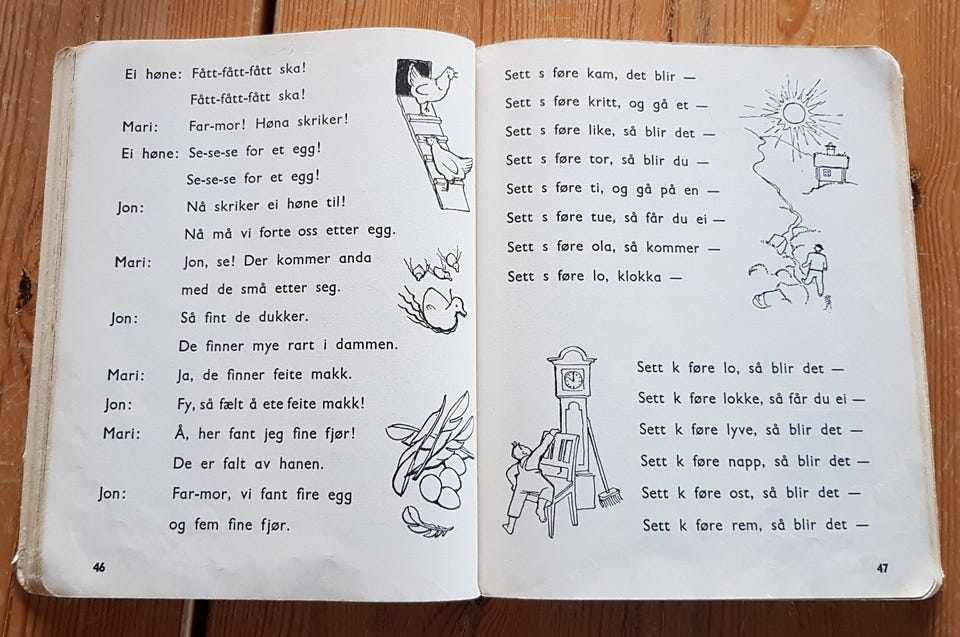 Ei høne: Fått-fått-fått ska!
Fått-fått-fått ska!
Mari: Far-mor! Høna skriker!
Ei høne: Se-se-se for et egg!
Se-se-se for et egg!
Jon: Nå skriker ei høne til!
Nå må vi forte oss etter egg.
Mari: Jon, se! Der kommer anda
med de små etter seg.
Jon: Så fint de dukker.
De finner mye rart i dammen.
Mari: Ja, de finner feite makk.
Jon: Fy, så fælt å ete feite makk!
Mari: Å, her fant jeg fine fjør!
De er falt av hanen.
Jon: Far-mor, vi fant fire egg
og fem fine fjør.
46
Sett s føre kam, det blir —
Sett s føre kritt, og gå et —
Sett s føre like, så blir det —
Sett s føre tor, så blir du —
Sett s føre ti, og gå på en —
Sett s føre tue, så får du ei —
Sett s føre ola, så kommer —
Sett s føre lo, klokka —
Sett k føre lo, så blir det —
Sett k føre lokke, så får du ei —
Sett k føre lyve, så blir det —
Sett k føre napp, så blir det —
Sett k føre ost, så blir det —
Sett k føre rem, så blir det —
47